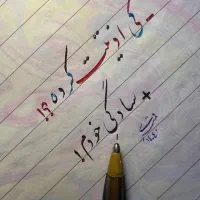 - کی اذیتت کرده؟!
+ سادگی خودم!